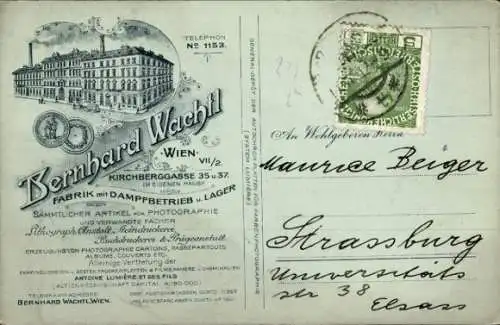 TELEPHON
No 1153.
Bernhard Wachtl
WIEN
VII/2.
KIRCHBERGGASSE 35 U. 37.
IM EIGENEN HAUSE
FABRIK mit DAMPFBETRIEB u. LAGER
SÄMMTLICHER ARTIKEL FÜR PHOTOGRAPHIE
UND VERWANDTE FÄCHER
Lithograph. Anstalt, Steindruckerei
Buchdruckerei & Prägeanstalt.
ERZEUGUNG VON PHOTOGRAPHIE CARTONS, PASSEPARTOUTS
ALBUMS, COUVERTS ETC.
Alleinige Vertretung der
ANTOINE LUMIÈRE ET SES FILS
TELEGRAMM ADRESSE:
BERNHARD WACHTL, WIEN.
GENERAL-DEPÔT DER AUTOCHROM-PLATTEN FÜR FARBENPHOTOGRAPHIE
(SYSTEM LUMIÈRE)
An Wohlgeboren Herrn
Maurice Beiger
Strassburg
Universitäts
str 38
Elsass